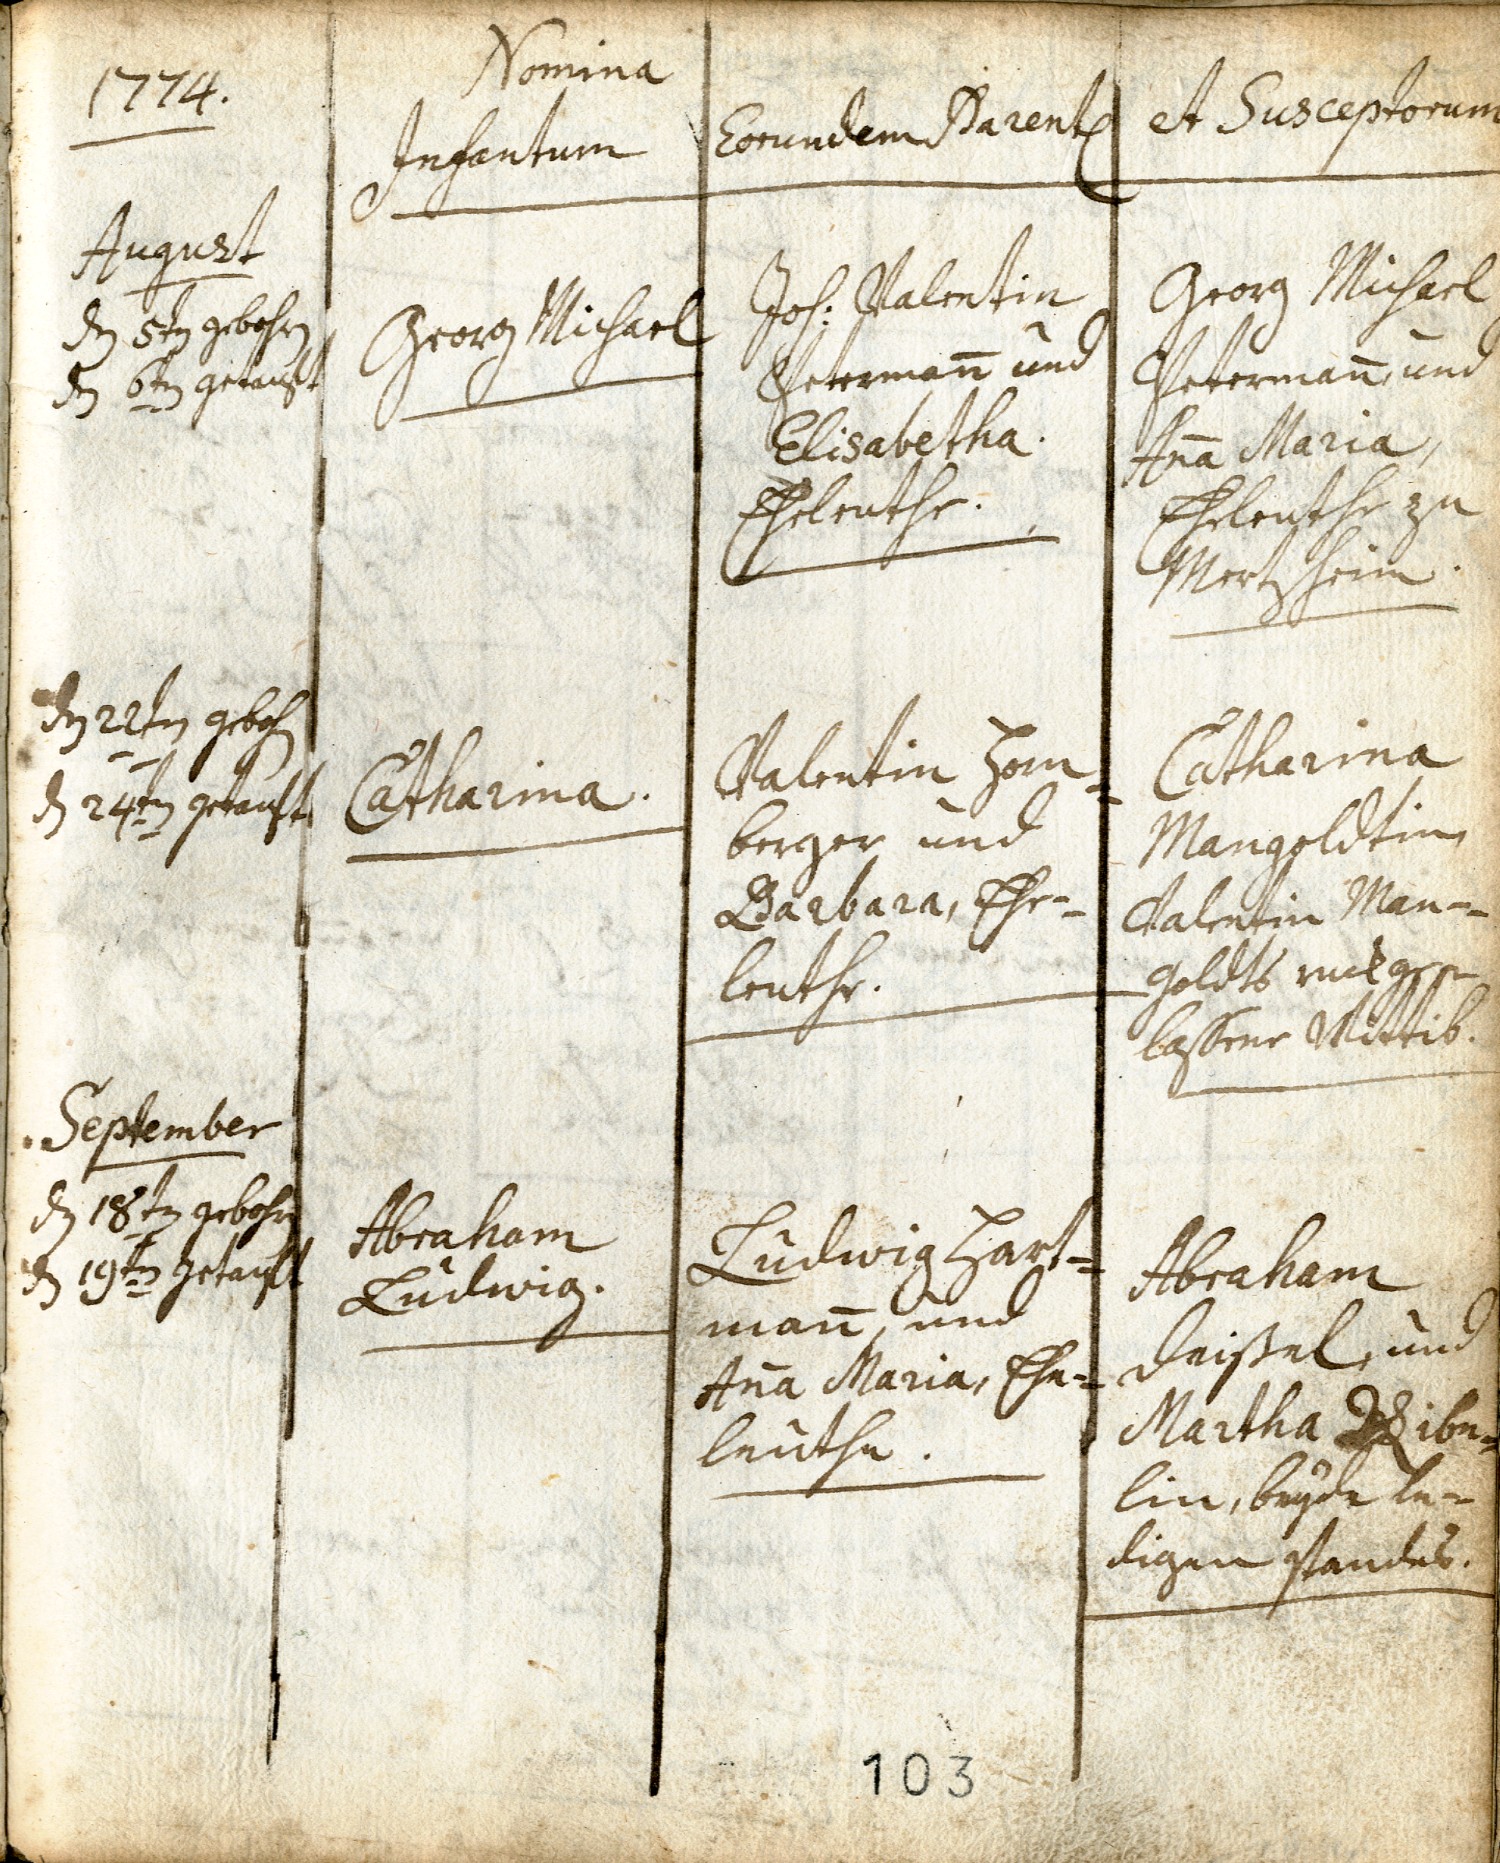 1774.
Nomina
Infantum
Eorundem Parent
et Susceptorum
August
den 5ten gebohren
den 6ten getauft
Georg Michael
Joh: Valentin
Petermañ und
Elisabetha.
Eheleuthe.
Georg Michael
Petermañ, und
Aña Maria,
Eheleuthe zu
Mertzheim.
den 22ten geboh
den 24ten getauft
Catharina.
Valentin Hom-
berger und
Barbara, Ehe-
leuthe.
Catharina
Mangoldtin,
Valentin Man-
goldts rückge-
lassene Wittib.
September
den 18ten gebohren
den 19ten getauft
Abraham
Ludwig.
Ludwig Hart-
mañ, und
Aña Maria, Ehe-
leuthe.
Abraham
Deißel, und
Martha Wibe-
lin, beyde le-
digen standes.
103